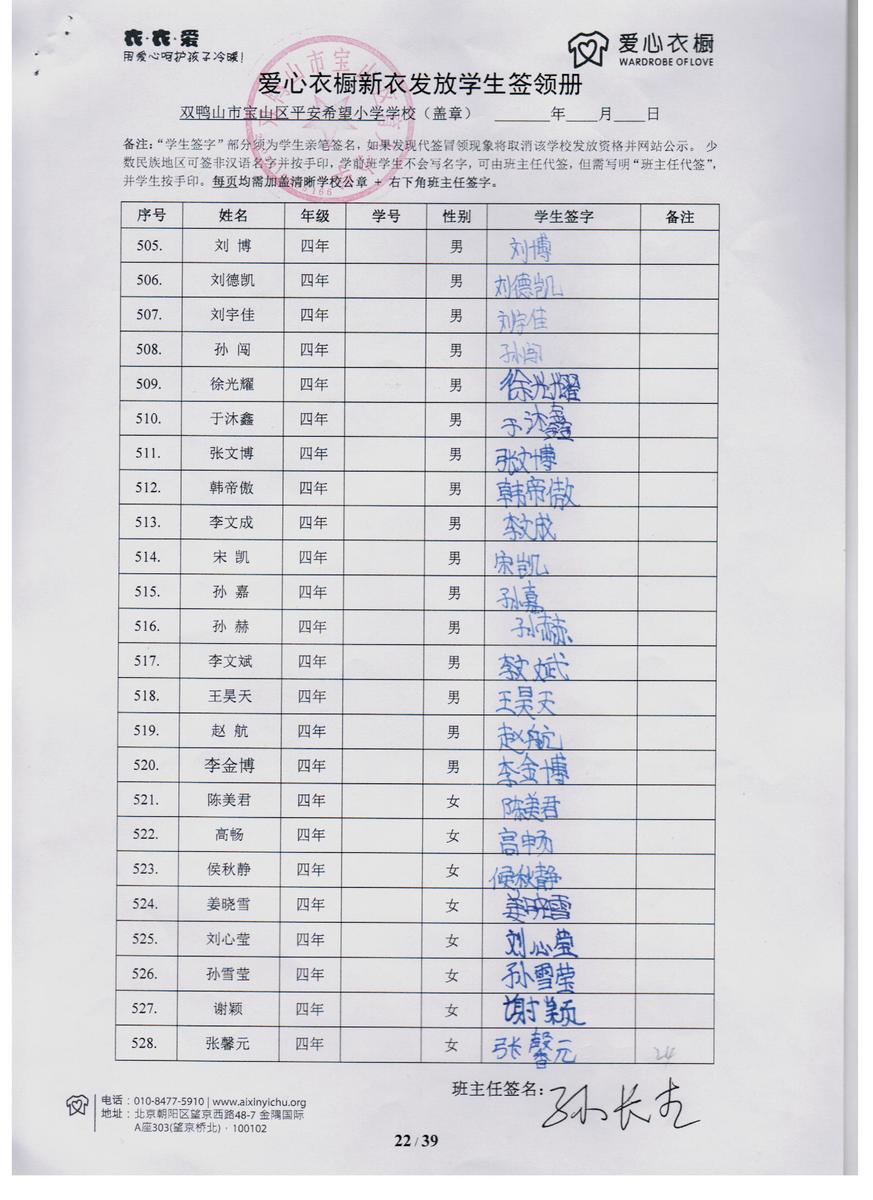 衣·衣·爱
用爱心呵护孩子冷暖!
爱心衣橱
WARDROBE OF LOVE
爱心衣橱新衣发放学生签领册
双鸭山市宝山区平安希望小学学校（盖章） ______年____月____日
备注：“学生签字”部分须为学生亲笔签名，如果发现代签冒领现象将取消该学校发放资格并网站公示。 少
数民族地区可签非汉语名字并按手印，学前班学生不会写名字，可由班主任代签，但需写明“班主任代签”，
并学生按手印。每页均需加盖清晰学校公章 + 右下角班主任签字。
序号 姓名 年级 学号 性别 学生签字 备注
505. 刘 博 四年 男 刘博
506. 刘德凯 四年 男 刘德凯
507. 刘宇佳 四年 男 刘宇佳
508. 孙 闯 四年 男 孙闯
509. 徐光耀 四年 男 徐光耀
510. 于沐鑫 四年 男 于沐鑫
511. 张文博 四年 男 张文博
512. 韩帝傲 四年 男 韩帝傲
513. 李文成 四年 男 李文成
514. 宋 凯 四年 男 宋凯
515. 孙 嘉 四年 男 孙嘉
516. 孙 赫 四年 男 孙赫
517. 李文斌 四年 男 李文斌
518. 王昊天 四年 男 王昊天
519. 赵 航 四年 男 赵航
520. 李金博 四年 男 李金博
521. 陈美君 四年 女 陈美君
522. 高畅 四年 女 高畅
523. 侯秋静 四年 女 侯秋静
524. 姜晓雪 四年 女 姜晓雪
525. 刘心莹 四年 女 刘心莹
526. 孙雪莹 四年 女 孙雪莹
527. 谢颖 四年 女 谢颖
528. 张馨元 四年 女 张馨元 24
班主任签名：
电话：010-8477-5910 | www.aixinyichu.org
地址：北京朝阳区望京西路48-7 金隅国际
A座303(望京桥北) · 100102
22 / 39